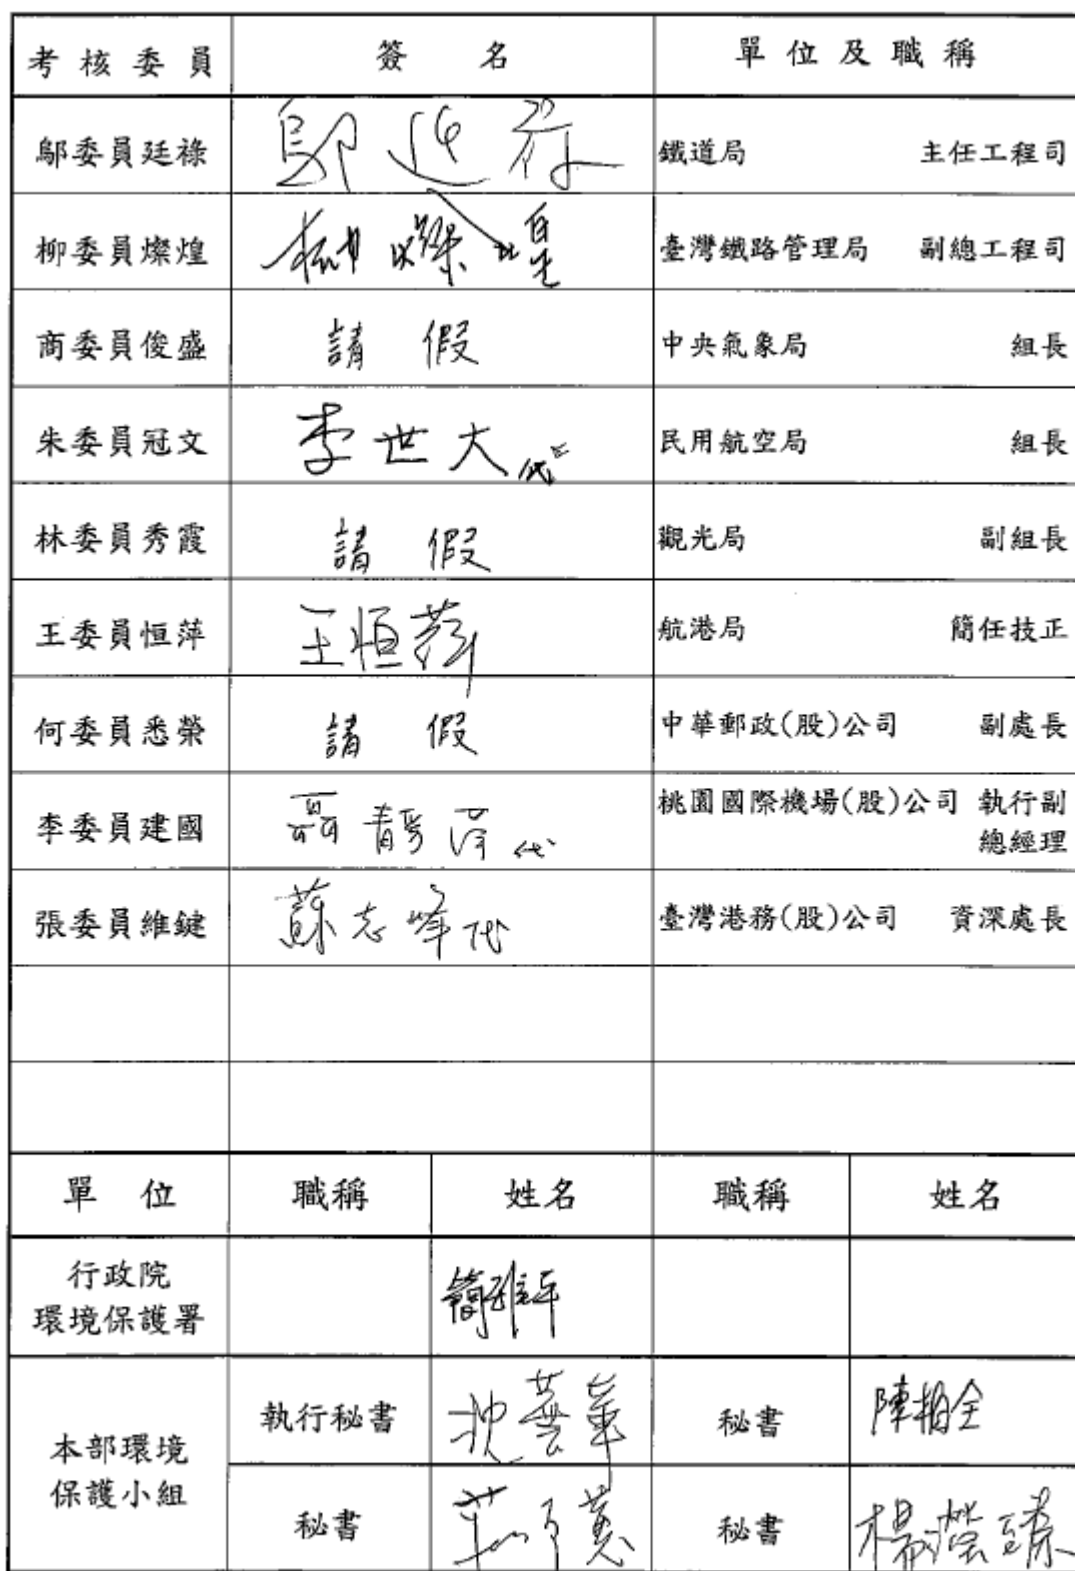 考核委員 簽名 單位及職稱
鄔委員廷祿 鄔廷祿 鐵道局 主任工程司
柳委員燦煌 柳燦煌 臺灣鐵路管理局 副總工程司
商委員俊盛 請假 中央氣象局 組長
朱委員冠文 李世大代 民用航空局 組長
林委員秀霞 請假 觀光局 副組長
王委員恒萍 王恒萍 航港局 簡任技正
何委員悉榮 請假 中華郵政(股)公司 副處長
李委員建國 代 桃園國際機場(股)公司 執行副
總經理
張委員維鍵 蘇志峰代 臺灣港務(股)公司 資深處長
單位 職稱 姓名 職稱 姓名
行政院
環境保護署 簡雅平
執行秘書 秘書 陳柏全
本部環境
保護小組
秘書 秘書